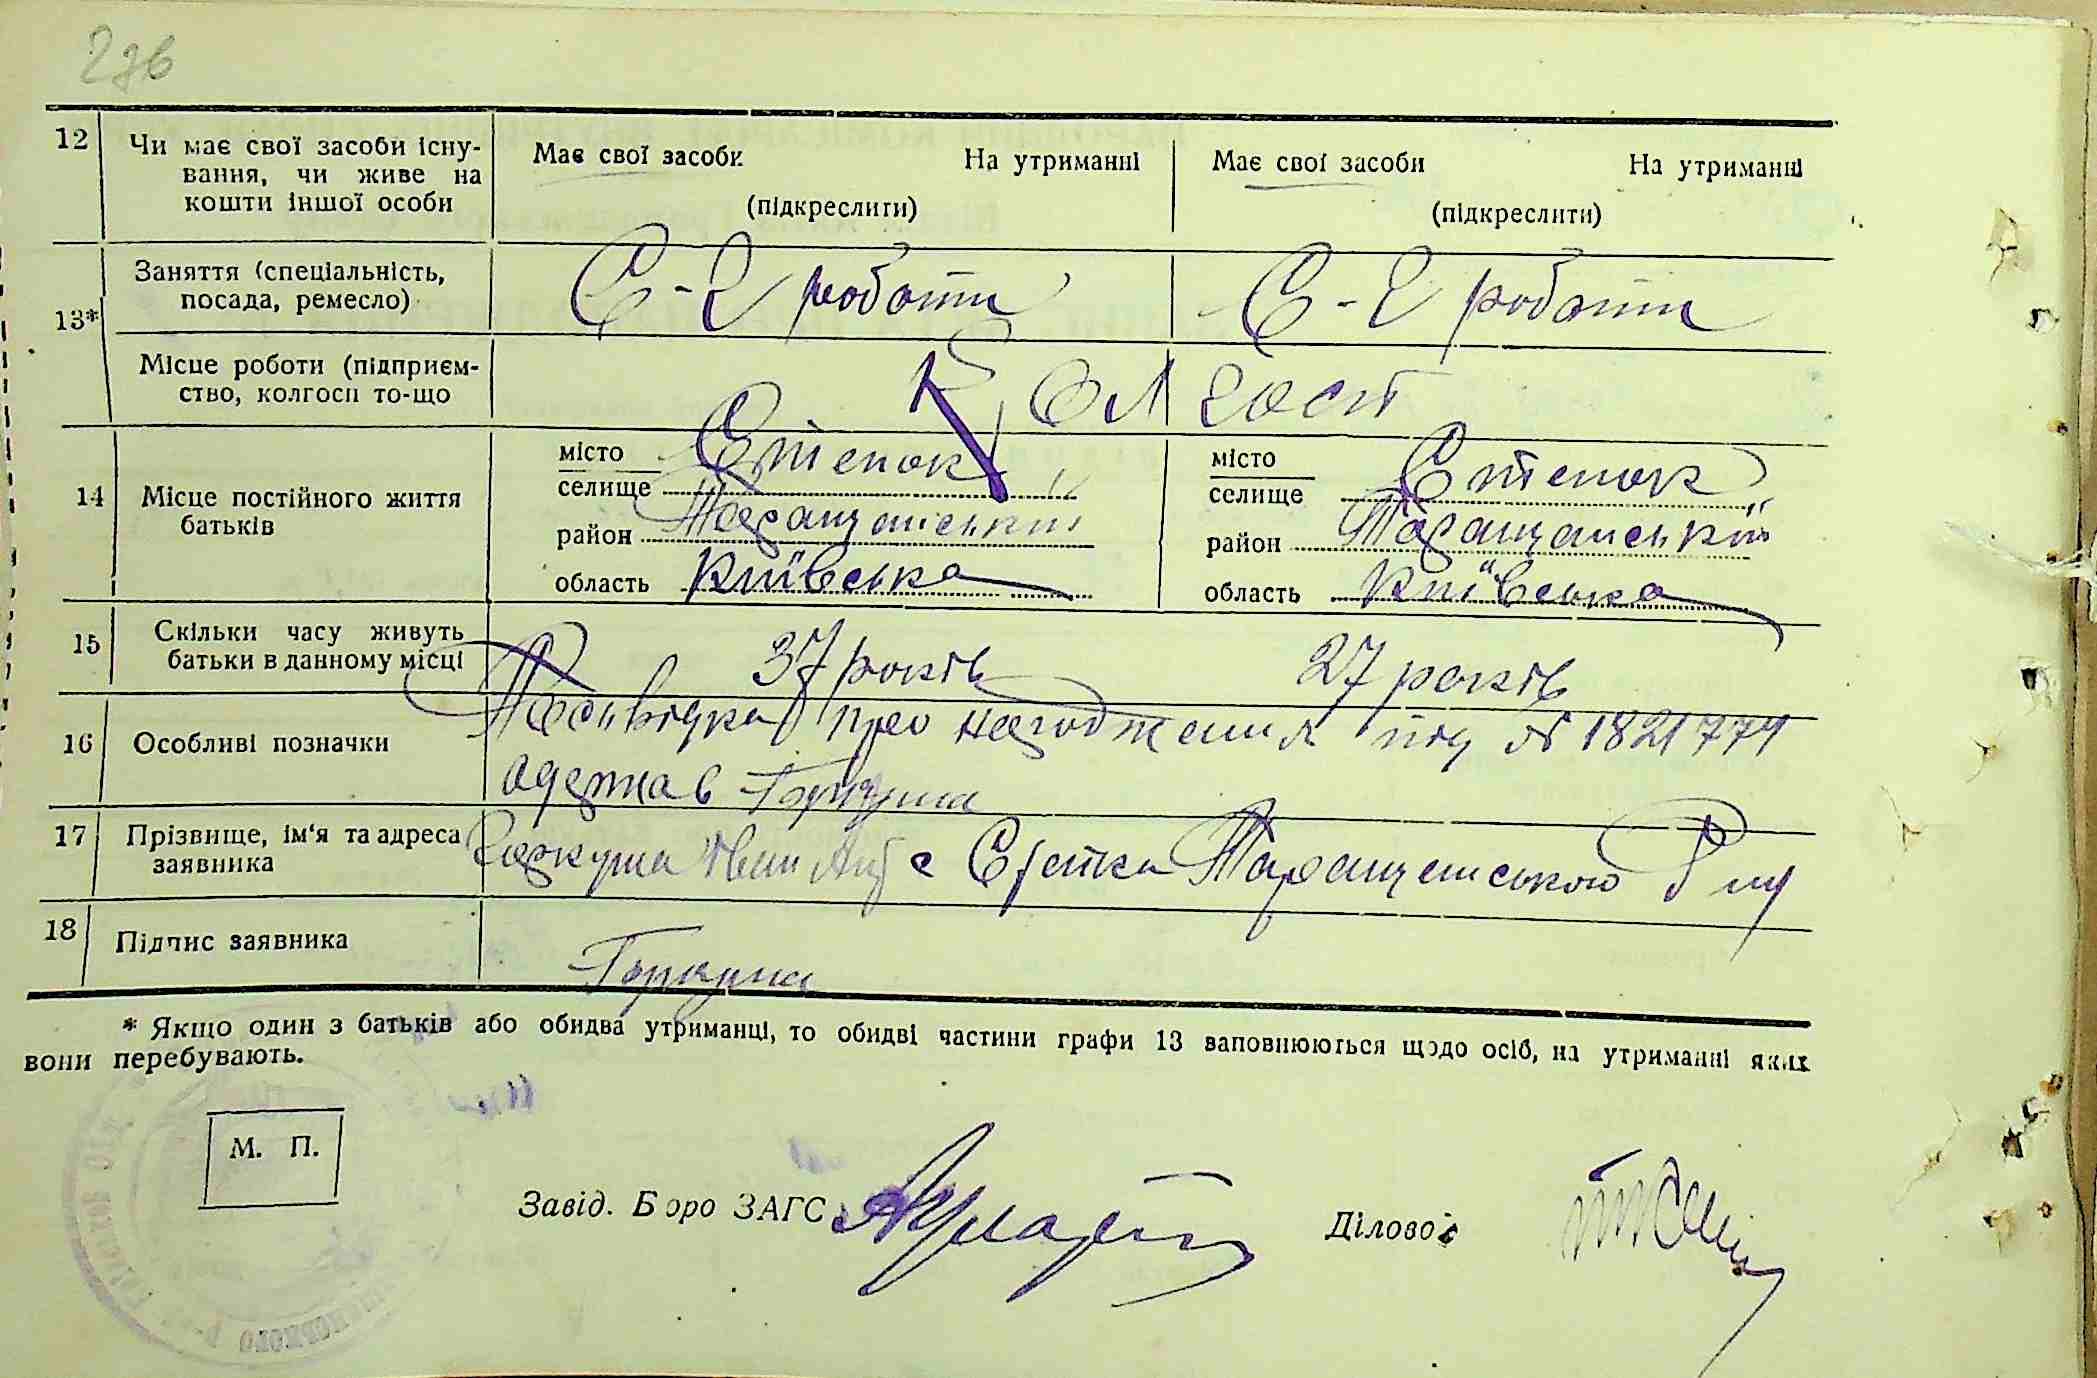 2зв
12 Чи має свої засоби існу-
вання, чи живе на
кошти іншої особи
Має свої засоби На утриманні
(підкреслити)
Має свої засоби На утриманні
(підкреслити)
13* Заняття (спеціальність,
посада, ремесло)
С-г роботи С-г роботи
Місце роботи (підприєм-
ство, колгосп то-що
Колгосп
14 Місце постійного життя
батьків
місто
селище Степок
район Таращанський
область Київська
місто
селище Степок
район Таращанський
область Київська
15 Скільки часу живуть
батьки в данному місці
37 років 27 років
16 Особливі позначки
Посвідка про народження під № 1821774
одержав Горкуша
17 Прізвище, ім'я та адреса
заявника
Горкуша Іван с Степка Таращанського р-ну
18 Підпис заявника
Горкуша
* Якщо один з батьків або обидва утриманці, то обидві частини графи 13 заповнюються щодо осіб, на утриманні яких
вони перебувають.
М. П.
Завід. Бюро ЗАГС
Діловод